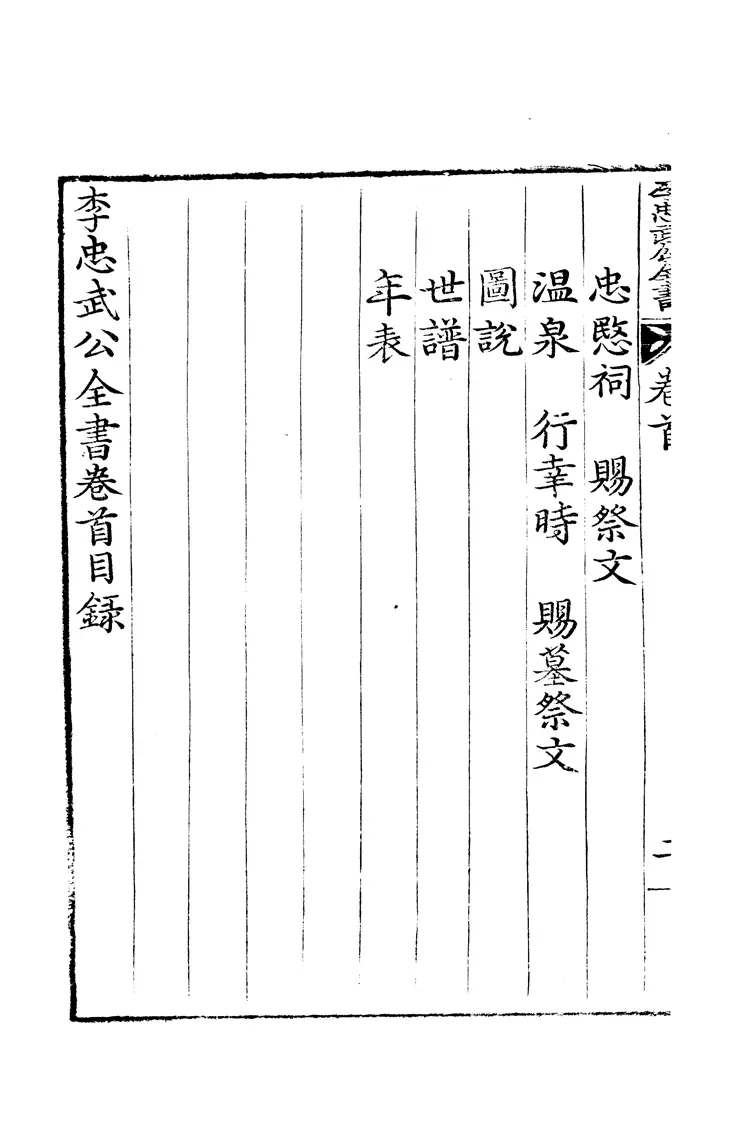 李忠武公全書
卷首
二
忠愍祠　賜祭文
温泉　行幸時　賜墓祭文
圖說
世譜
年表
李忠武公全書卷首目録